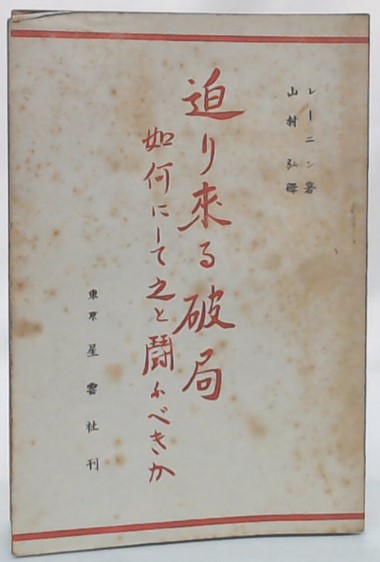 レーニン著
山村弘譯
迫り來る破局
如何にして之と鬪ふべきか
東京 星雲社刊